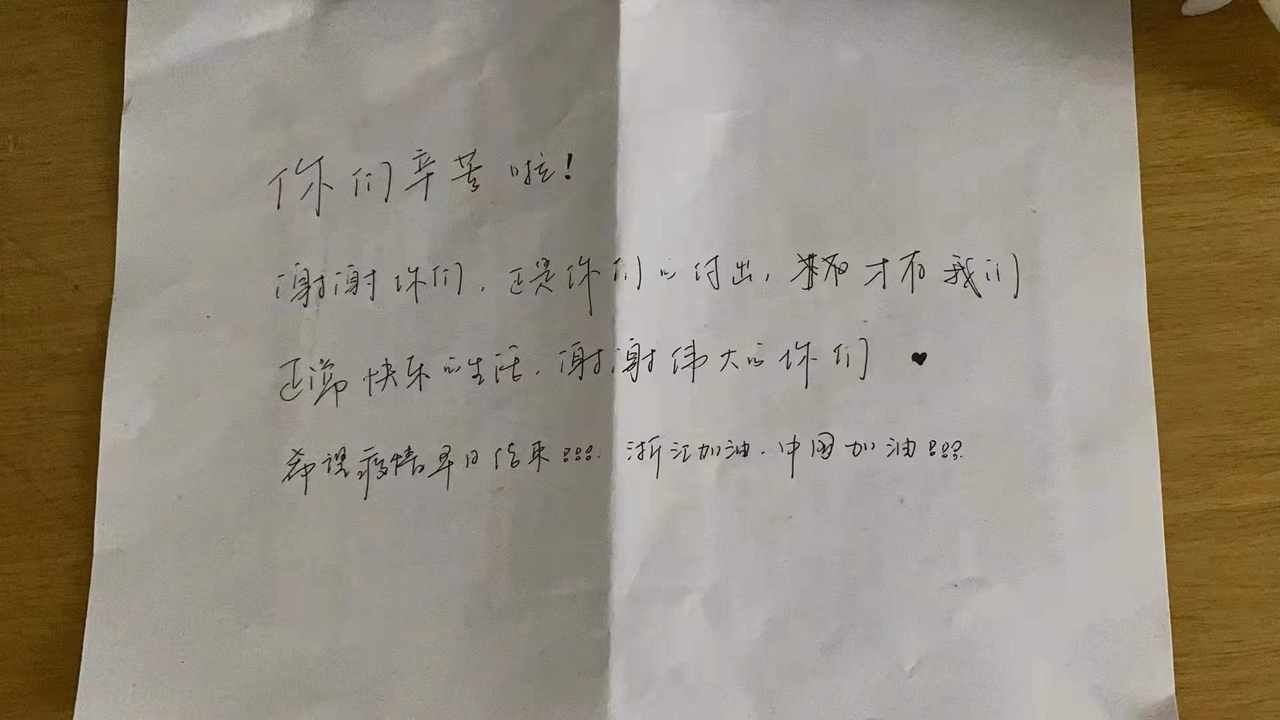 你们辛苦啦!
谢谢你们,正是你们的付出,才有我们
正常快乐的生活,谢谢伟大的你们 ♥
希望疫情早日结束!!! 浙江加油,中国加油!!!